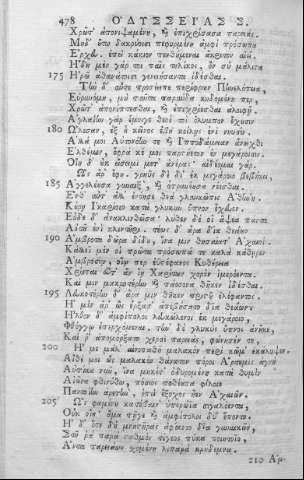 478 ΟΔΥΣΣΕΙΑΣ Σ.
Χρῶτ' ἀπονιψαμένη, καὶ ἐπιχρίσασα παρειάς·
Μηδ' οὕτω δακρύοισι πεφυρμένη ἀμφὶ πρόσωπα
Ἔρχευ. ἐπεὶ κάκιον πενθήμεναι ἄκριτον αἰεί.
175 Ἤδη μὲν γάρ τοι παῖς τηλίκος, ὃν σὺ μάλιστα
Ἠρῶ ἀθανάτοισι γενειήσαντα ἰδέσθαι.
Τὴν δ' αὖτε προσέειπε περίφρων Πηνελόπεια,
Εὐρυνόμη, μὴ ταῦτα παραύδα κηδομένη περ,
Χρῶτ' ἀπονίπτεσθαι, καὶ ἐπιχρίεσθαι ἀλοιφῇ·
Ἀγλαΐην γὰρ ἔμοιγε θεοὶ τοὶ ὄλυμπον ἔχουσιν
180 Ὤλεσαν, ἐξ οὗ κεῖνος ἔβη κοίλης ἐνὶ νηυσίν.
Ἀλλά μοι Αὐτονόην τε καὶ Ἱπποδάμειαν ἄνωχθι
Ἐλθέμεν, ὄφρα κέ μοι παρστήετον ἐν μεγάροισιν·
Οἴη δ' οὐκ εἴσειμι μετ' ἀνέρας· αἰδέομαι γάρ.
Ὣς ἄρ' ἔφη· γρηῢς δὲ δι' ἐκ μεγάροιο βεβήκει,
185 Ἀγγελέουσα γυναιξὶ, καὶ ὀτρυνέουσα νέεσθαι.
Ἔνθ' αὖτ' ἄλλ' ἐνόησε θεὰ γλαυκῶπις Ἀθήνη·
Κούρῃ Ἰκαρίοιο κατὰ γλυκὺν ὕπνον ἔχευεν.
Εὗδε δ' ἀνακλινθεῖσα· λύθεν δέ οἱ ἅψεα πάντα
Αὐτοῦ ἐνὶ κλιντῆρι. τέως δ' ἄρα δῖα θεάων
190 Ἄμβροτα δῶρα δίδου, ἵνα μιν θησαίατ' Ἀχαιοί.
Κάλλεϊ μέν οἱ πρῶτα προσώπατα καλὰ κάθηρεν
Ἀμβροσίῳ, οἵῳ περ ἐϋστέφανος Κυθέρεια
Χρίεται εὖτ' ἂν ἴῃ Χαρίτων χορὸν ἱμερόεντα.
Καί μιν μακροτέρην καὶ πάσσονα θῆκεν ἰδέσθαι.
195 Λευκοτέρην δ' ἄρα μιν θῆκε πριστοῦ ἐλέφαντος.
Ἡ μὲν ἄρ' ὣς ἔρξασ' ἀπεβήσατο δῖα θεάων·
Ἦλθον δ' ἀμφίπολοι λευκώλενοι ἐκ μεγάροιο,
Φθόγγῳ ἐπερχόμεναι. τὴν δὲ γλυκὺς ὕπνος ἀνῆκε,
Καί ῥ' ἀπομόρξατο χερσὶ παρειὰς, φώνησέν τε,
200 Ἦ με μάλ' αἰνοπαθῆ μαλακὸν περὶ κῶμ' ἐκάλυψεν·
Αἴθε μοι ὣς μαλακὸν θάνατον πόροι Ἄρτεμις ἁγνὴ
Αὐτίκα νῦν, ἵνα μηκέτ' ὀδυρομένη κατὰ θυμὸν
Αἰῶνα φθινύθω, πόσιος ποθέουσα φίλοιο
Παντοίην ἀρετήν, ἐπεὶ ἔξοχος ἦεν Ἀχαιῶν.
205 Ὣς φαμένη κατέβαιν' ὑπερώϊα σιγαλόεντα,
Οὐκ οἴη· ἅμα τῇγε καὶ ἀμφίπολοι δύ' ἕποντο.
Ἡ δ' ὅτε δὴ μνηστῆρας ἀφίκετο δῖα γυναικῶν,
Στῆ ῥα παρὰ σταθμὸν τέγεος πύκα ποιητοῖο,
Ἄντα παρειάων σχομένη λιπαρὰ κρήδεμνα.
210 Ἀμ-